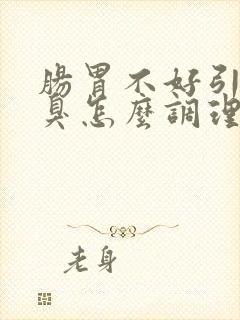 腸胃不好引
臭怎麼調理
老身